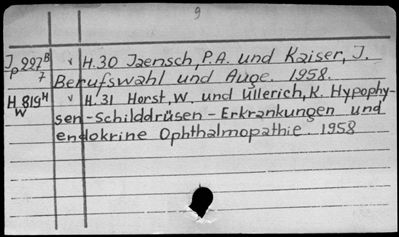 9
Jp 227 B 7 v H.30 Jaensch, P.A. und Kaiser, J.
Berufswahl und Auge. 1958.
H 819 H W v H.31 Horst, W. und Üllerich, K. Hypophy-
sen-Schilddrüsen-Erkrankungen und
endokrine Ophthalmopathie 1958